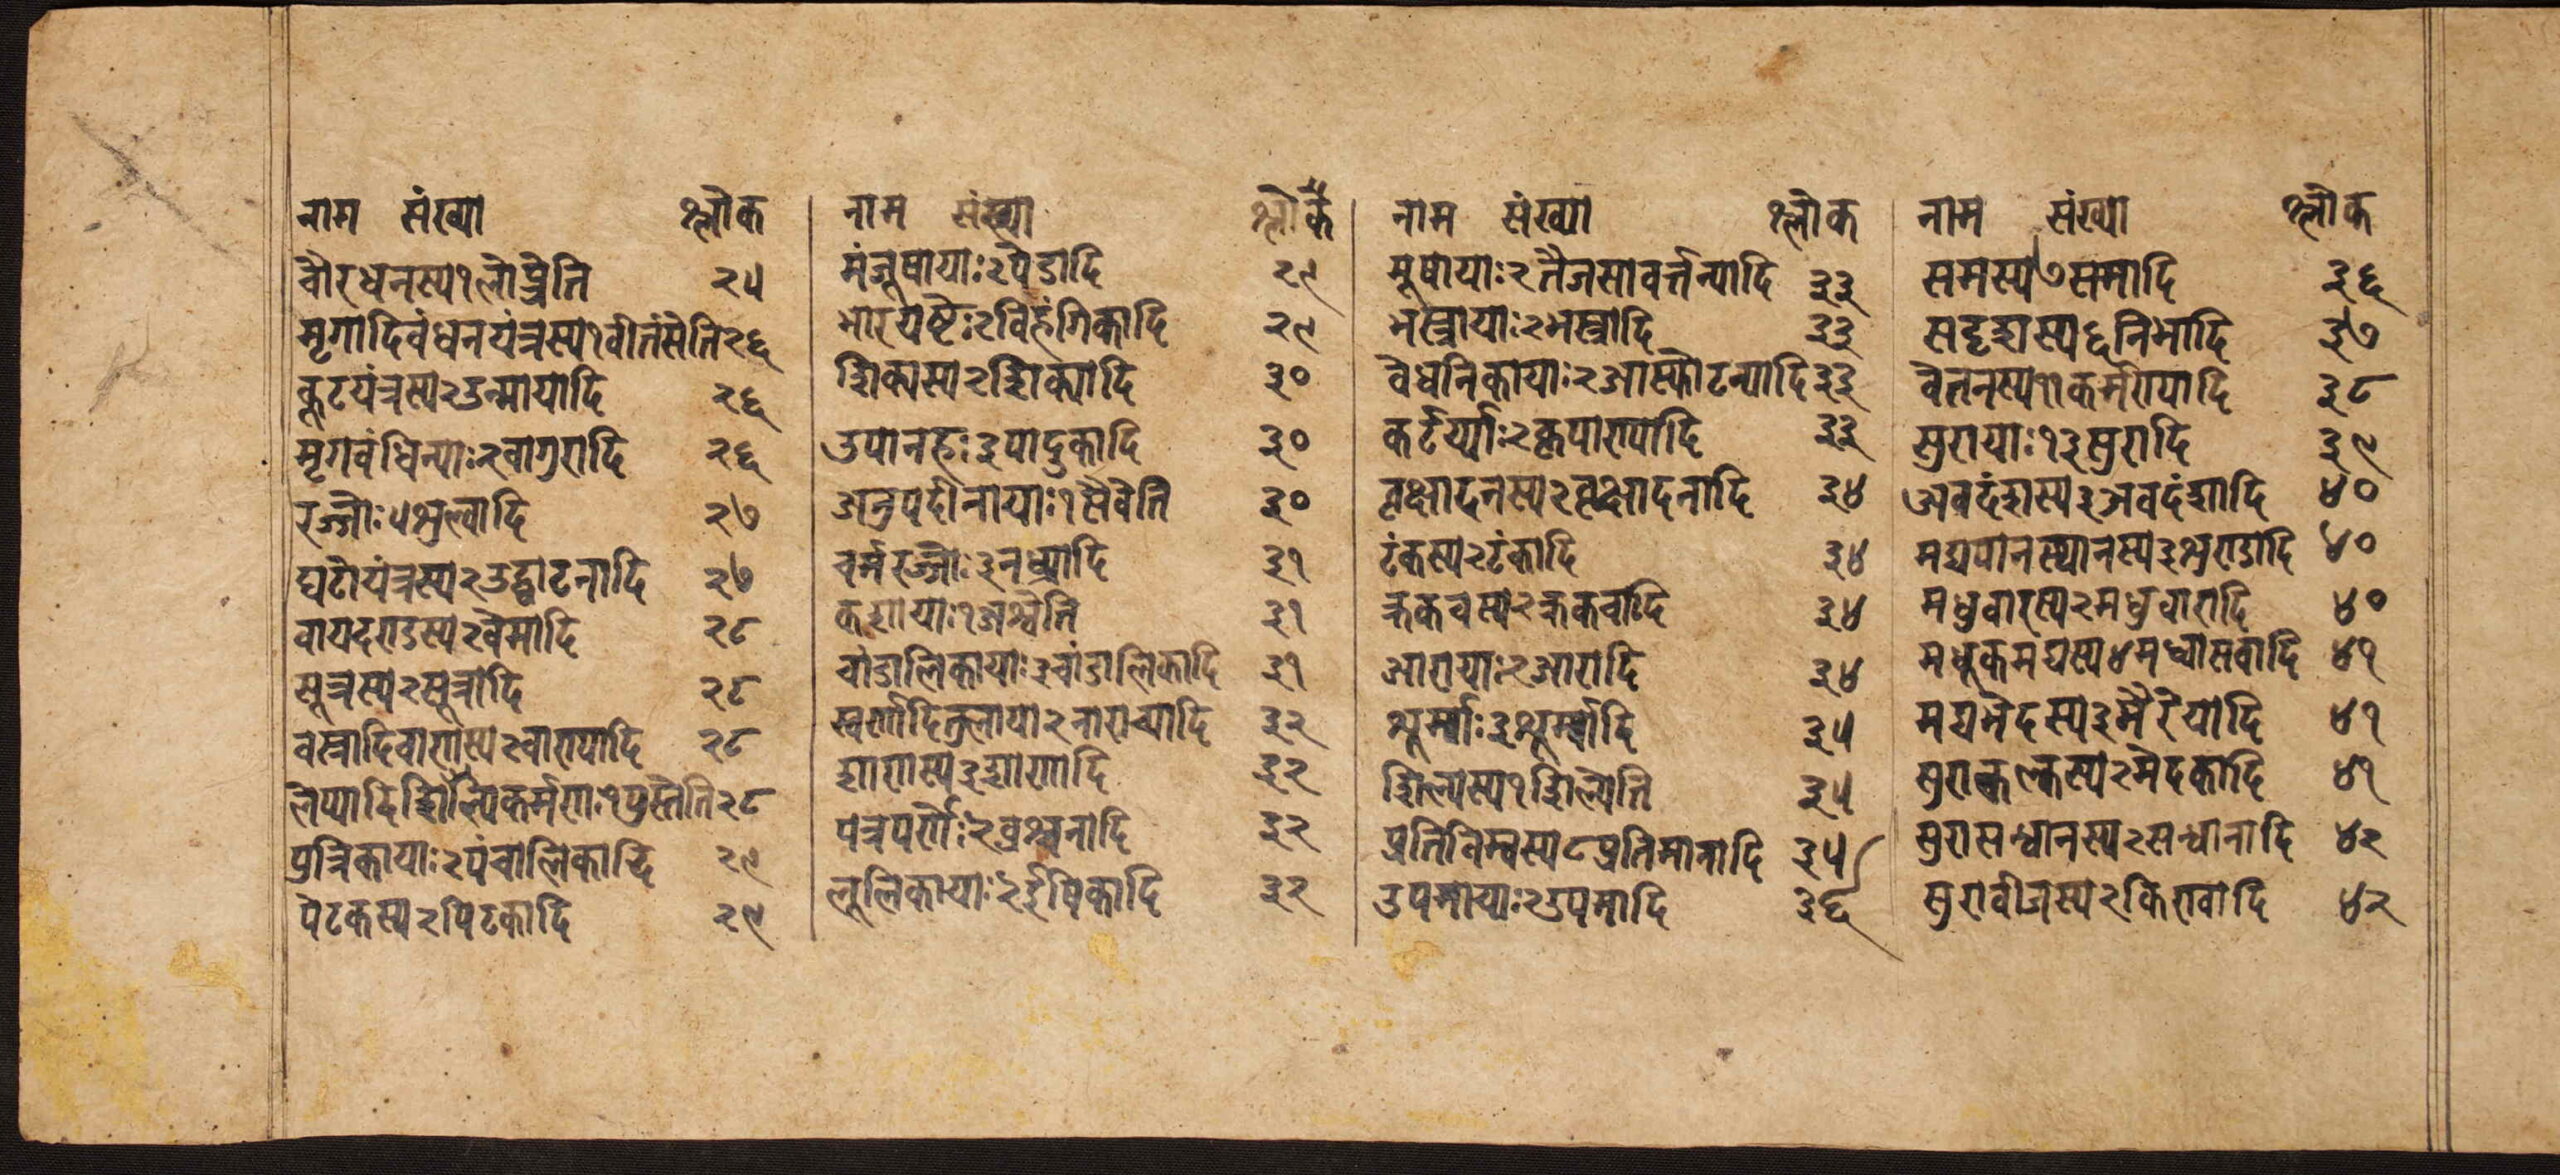 नाम संख्या श्लोक
चौरधनस्य१लोप्त्रेति २५
मृगादिवंधनयंत्रस्य१वीतंसेति २६
कूटयंत्रस्य२उन्माथादि २६
मृगवंधिन्याः२वागुरादि २६
रज्जोः५शुल्वादि २७
घटीयंत्रस्य२उद्घाटनादि २७
वायदण्डस्य२वेमादि २८
सूत्रस्य२सूत्रादि २८
वस्त्रादिवाणस्य२वाण्यादि २८
लेप्यादिशिल्पिकर्मणः१पुस्तेति २८
पुत्रिकायाः२पंचालिकादि २९
पेटकस्य२पिटकादि २९
नाम संख्या श्लोक
मंजूषायाः२पेडादि २९
भारयष्टेः२विहंगिकादि २९
शिक्यस्य२शिक्यादि ३०
उपानहः३पादुकादि ३०
अनुपदीनायाः१सैवेति ३०
चर्मरज्जोः३नध्र्यादि ३१
कशायाः१अश्वेति ३१
चांडालिकायाः३चांडालिकादि ३१
स्वर्णादितुलाया२नाराच्यादि ३२
शाणस्य३शाणादि ३२
पत्रपर्शोः२व्रश्चनादि ३२
लूलिकायाः२ईषिकादि ३२
नाम संख्या श्लोक
मूषायाः२तैजसावर्त्तन्यादि ३३
भस्त्रायाः२भस्त्रादि ३३
वेधनिकायाः२आस्फोटन्यादि ३३
कर्टर्य्याः२कृपाण्यादि ३३
वृक्षादनस्य२वृक्षादनादि ३४
टंकस्य२टंकादि ३४
क्रकचस्य२क्रकचादि ३४
आरायाः२आरादि ३४
शूर्म्याः३शूर्म्यादि ३५
शिल्पस्य१शिल्पेति ३५
प्रतिविम्वस्य८प्रतिमानादि ३५
उपमायाः२उपमादि ३६
नाम संख्या श्लोक
समस्य७समादि ३६
सदृशस्य६निभादि ३७
वेतनस्य११कर्मण्यादि ३८
सुरायाः१३सुरादि ३९
अवदंशस्य३अवदंशादि ४०
मद्यपानस्थानस्य३शुण्डादि ४०
मधुवारस्य२मधुवारादि ४०
मधूकमद्यस्य४मध्वासवादि ४१
मद्यमेदस्य३मैरेयादि ४१
सुराकल्कस्य२मेदकादि ४१
सुरासन्धानस्य२सन्धानादि ४२
सुरावीजस्य२किण्वादि ४२